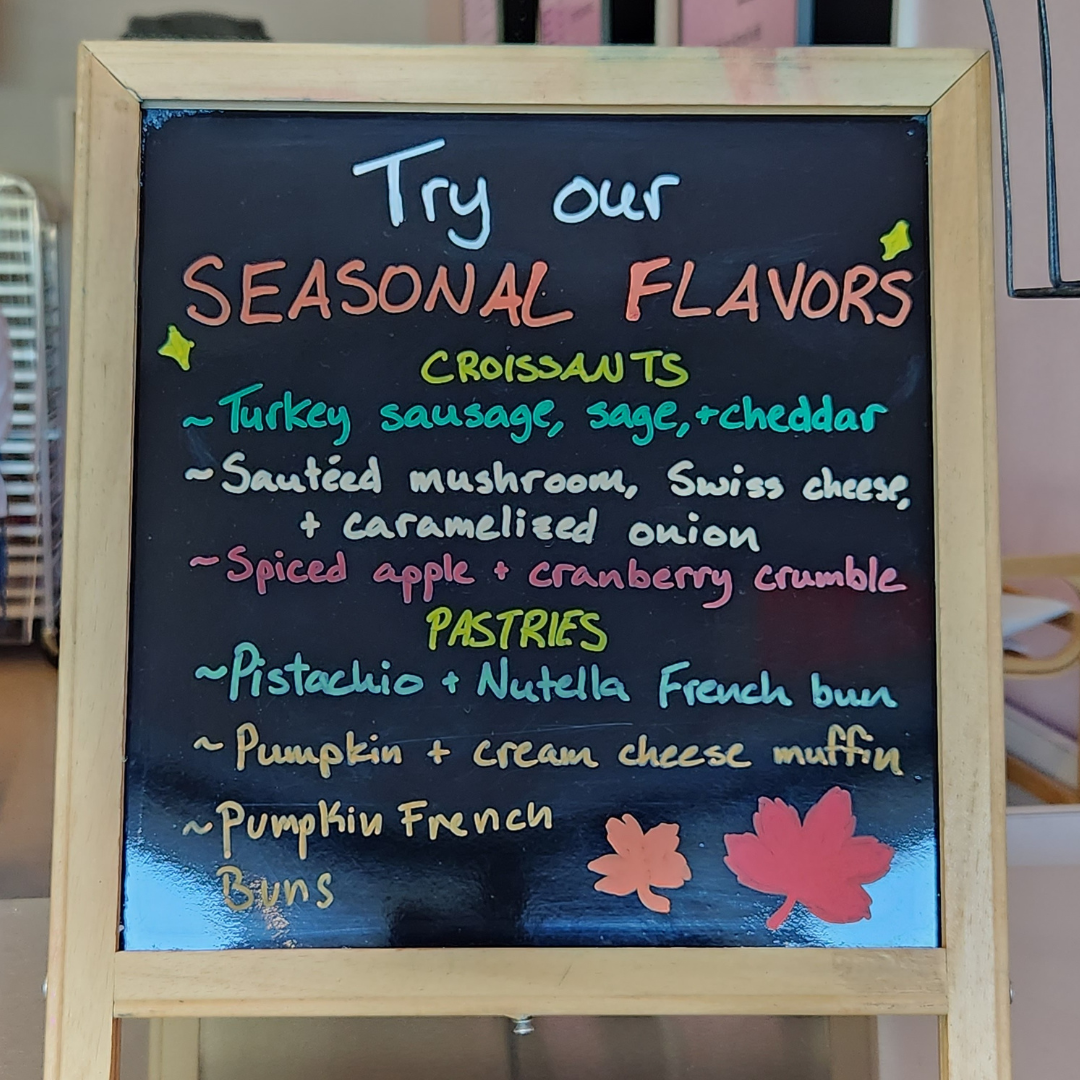 Try our
SEASONAL FLAVORS
CROISSANTS
~Turkey sausage, sage, + cheddar
~Sautéed mushroom, Swiss cheese,
+ caramelized onion
~Spiced apple + cranberry crumble
PASTRIES
~Pistachio + Nutella French bun
~Pumpkin + cream cheese muffin
~Pumpkin French
Buns